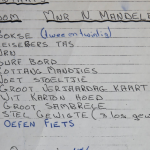 OOM MNR N MANDELA
BOKSE (twee en twintig)
REISEBERS TAS
URN
SURF BORD
KOTTANG MANDJIES
VOET STOELTJIE
GROOT VERJAARDAG KAART
WIT KARTON HOED
GROOT SAMBREEL
STEL GEWIGTE (3 los gew
OEFEN FIETS